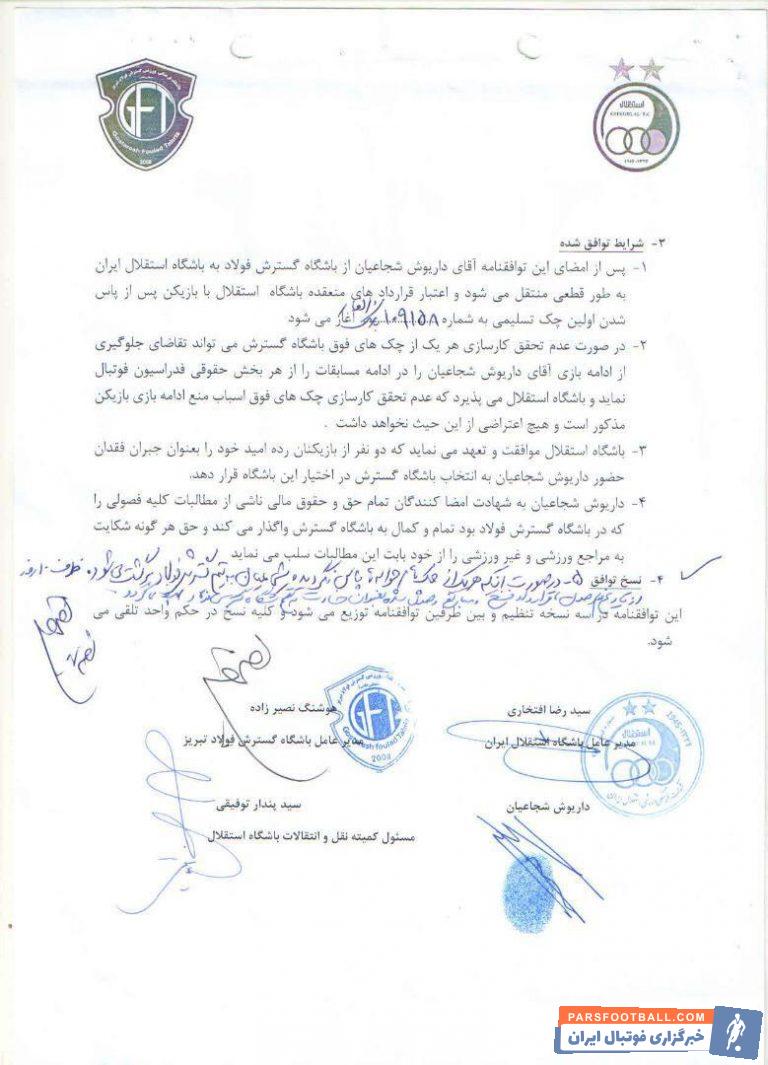 GFT
Gostaresh Foulad Tabriz
2008
استقلال
۳- شرایط توافق شده
۱- پس از امضای این توافقنامه آقای داریوش شجاعیان از باشگاه گسترش فولاد به باشگاه استقلال ایران
به طور قطعی منتقل می شود و اعتبار قرارداد های منعقده باشگاه استقلال با بازیکن پس از پاس
شدن اولین چک تسلیمی به شماره ۱۰۹۱۵۸ آغاز می شود
۲- در صورت عدم تحقق کارسازی هر یک از چک های فوق باشگاه گسترش می تواند تقاضای جلوگیری
از ادامه بازی آقای داریوش شجاعیان را در ادامه مسابقات را از هر بخش حقوقی فدراسیون فوتبال
نماید و باشگاه استقلال می پذیرد که عدم تحقق کارسازی چک های فوق اسباب منع ادامه بازی بازیکن
مذکور است و هیچ اعتراضی از این حیث نخواهد داشت .
۳- باشگاه استقلال موافقت و تعهد می نماید که دو نفر از بازیکنان رده امید خود را بعنوان جبران فقدان
حضور داریوش شجاعیان به انتخاب باشگاه گسترش در اختیار این باشگاه قرار دهد.
۴- داریوش شجاعیان به شهادت امضا کنندگان تمام حق و حقوق مالی ناشی از مطالبات کلیه فصولی را
که در باشگاه گسترش فولاد بود تمام و کمال به باشگاه گسترش واگذار می کند و حق هر گونه شکایت
به مراجع ورزشی و غیر ورزشی را از خود بابت این مطالبات سلب می نماید
۴- نسخ توافق ۵- در صورت
این توافقنامه در سه نسخه تنظیم و بین طرفین توافقنامه توزیع می شود و کلیه نسخ در حکم واحد تلقی می
شود.
سید رضا افتخاری
هوشنگ نصیر زاده
مدیر عامل باشگاه استقلال ایران
مدیر عامل باشگاه گسترش فولاد تبریز
داریوش شجاعیان
سید پندار توفیقی
مسئول کمیته نقل و انتقالات باشگاه استقلال
PARSFOOTBALL.COM
خبرگزاری فوتبال ایران